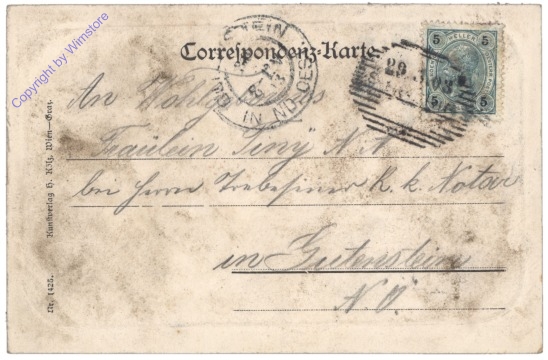 Correspondenz-Karte
5 HELLER 5
5 5
29
03
STEIN
IN N.OEST
An Wohlgeboren
Fräulein Tiny N. N.
bei Herrn k. k. Notar
in Gutenstein
N. Ö.
Kunstverlag H. Kölz, Wien—Graz.
Nr. 1425.
Copyright by Wimstore